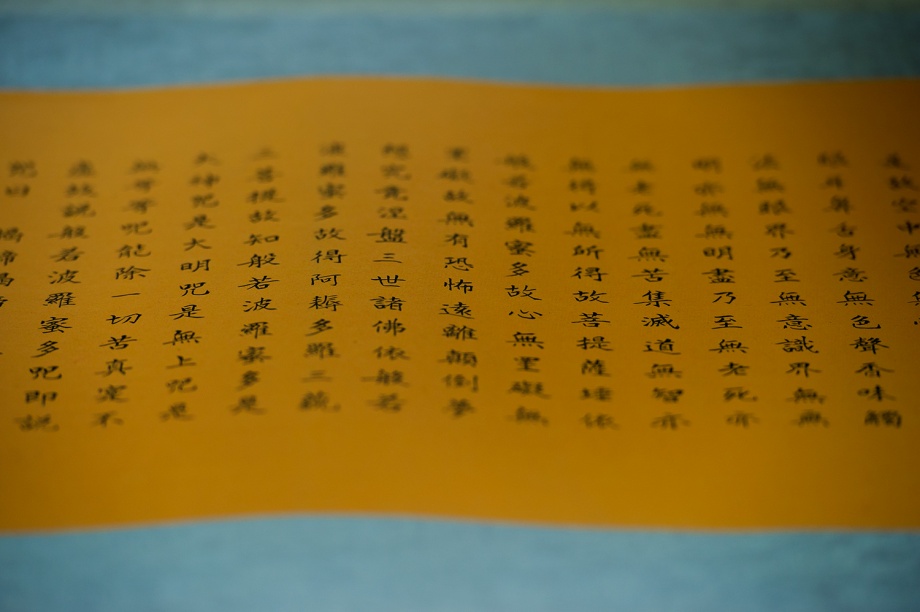 眼耳鼻舌身意無色聲香味觸
法無眼界乃至無意識界無無
明亦無無明盡乃至無老死亦
無老死盡無苦集滅道無智亦
無得以無所得故菩提薩埵依
般若波羅蜜多故心無罣礙無
罣礙故無有恐怖遠離顛倒夢
想究竟涅盤三世諸佛依般若
波羅蜜多故得阿耨多羅三藐
三菩提故知般若波羅蜜多是
大神咒是大明咒是無上咒是
無等等咒能除一切苦真實不
虛故說般若波羅蜜多咒即說
咒曰